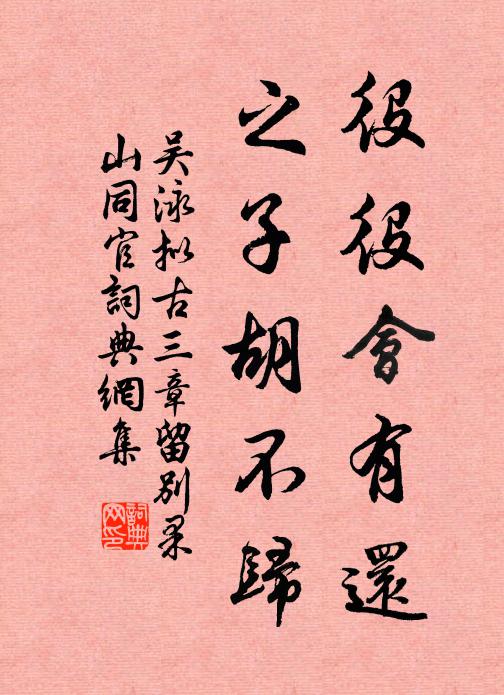 役役會有還
之子胡不歸
吴泳拟古三章留别果
山同官詞典網集
詞典
网印